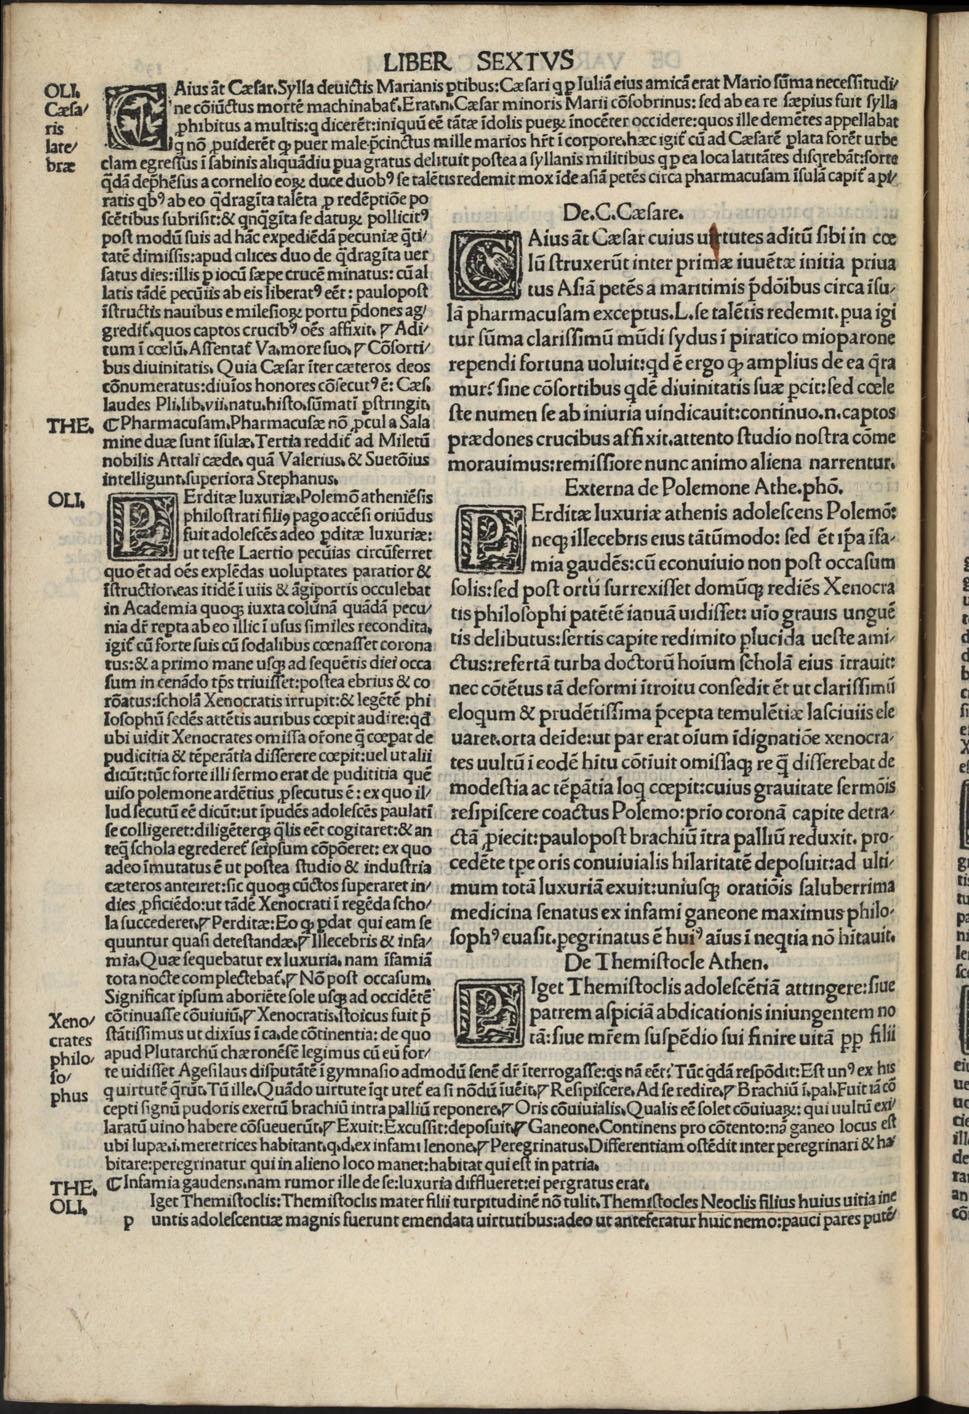 LIBER SEXTVS
OLI.
Cæsa/
ris
late/
bræ
CAius āt Cæsar. Sylla deuictis Marianis ptibus: Cæsari q p Iuliā eius amicā erat Mario sūma necessitudi/
ne cōiūctus mortē machinabat. Erat.n. Cæsar minoris Marii cōsobrinus: sed ab ea re sæpius fuit sylla
phibitus a multis: q dicerēt: iniquū eē tātæ īdolis pueꝝ īnocēter occidere: quos ille demētes appellabat
q nō puiderēt qꝫ puer male pcinctus mille marios hr̄t ī corpore. hæc igit cū ad Cæsarē plata forēt urbe
clam egressus ī sabinis aliquādiu pua gratus delituit postea a syllanis militibus q p ea loca latitātes disqrebāt: forte
q̄dā dep̄hēsus a cornelio eoꝝ duce duob⁹ se talētis redemit mox īde asiā petēs circa pharmacusam īsulā capit a pi/
ratis qb⁹ ab eo q̄dragīta talēta p redēptiōe po
scētibus subrisit: & qnqgīta se datuꝝ pollicit⁹
post modū suis ad hāc expediēdā pecuniæ q̄ti/
tatē dimissis: apud cilices duo de q̄dragīta uer
satus dies: illis p iocū sæpe crucē minatus: cū al
latis tādē pecūiis ab eis liberat⁹ eēt: paulopost
īstructis nauibus e milesioꝝ portu p̄dones ag/
gredit. quos captos crucib⁹ oēs affixit. ¶ Adi/
tum ī cœlū. Assentat Va. more suo. ¶ Cōsorti/
bus diuinitatis. Quia Cæsar īter cæteros deos
cōnumeratus: diuios honores cōsecut⁹ ē: Cæs.
laudes Pli. lib. vii. natu. histo. sūmatī pstringit.
THE.
¶ Pharmacusam. Pharmacusæ nō pcul a Sala
mine duæ sunt īsulæ. Tertia reddit ad Miletū
nobilis Attali cæde. quā Valerius. & Suetōius
intelligunt. superiora Stephanus.
OLI.
PErditæ luxuriæ. Polemō atheniēsis
philostrati fili⁹ pago accēsi oriūdus
fuit adolescēs adeo pditæ luxuriæ:
ut teste Laertio pecūias circūferret
quo ēt ad oēs explēdas uoluptates paratior &
īstructior. eas itidē ī uiis & āgiportis occulebat
in Academia quoqꝫ iuxta colūnā quādā pecu/
nia dr̄ repta ab eo illic ī usus similes recondita.
igit cū forte suis cū sodalibus cœnasset corona
tus: & a primo mane usqꝫ ad sequētis diei occa
sum in cenādo tp̄s triuisset: postea ebrius & co
rōatus: scholā Xenocratis irrupit: & legētē phi
losophū sedēs attētis auribus cœpit audire: qd
ubi uidit Xenocrates omissa or̄one q̄ cœpat de
pudicitia & tēperātia disserere cœpit: uel ut alii
dicūt: tūc forte illi sermo erat de pudititia quē
uiso polemone ardētius psecutus ē: ex quo il/
lud secutū eē dicūt: ut īpudēs adolescēs paulatī
se colligeret: diligēterqꝫ q̄lis eēt cogitaret: & an
teq̄ schola egrederet seīpsum cōpōeret: ex quo
adeo īmutatus ē ut postea studio & industria
cæteros anteiret: sic quoqꝫ cūctos superaret in/
dies pficiēdo: ut tādē Xenocrati ī regēda scho/
la succederet. ¶ Perditæ: Eo qꝫ pdat qui eam se
quuntur quasi detestandæ. ¶ Illecebris & infa/
mia. Quæ sequebatur ex luxuria. nam īfamiā
tota nocte complectebat. ¶ Nō post occasum.
Significat ipsum aboriēte sole usqꝫ ad occidētē
Xeno/
crates
philo/
so/
phus
cōtinuasse cōuiuiū. ¶ Xenocratis. stoicus fuit p̄
stātissimus ut dixius ī ca. de cōtinentia: de quo
apud Plutarchū chæronēsē legimus cū eū for/
te uidisset Agesilaus disputātē ī gymnasio admodū senē dr̄ īterrogasse: qs nā eēt: Tūc q̄dā respōdit: Est un⁹ ex his
qui uirtutē q̄rūt. Tū ille. Quādo uirtute iqt utet ea si nōdū iuēit. ¶ Resipiscere. Ad se redire. ¶ Brachiū ī. pal. Fuit tā cō
cepti signū pudoris exertū brachiū intra palliū reponere. ¶ Oris cōuiuialis. Qualis eē solet cōuiuaꝝ: qui uultū exi/
laratū uino habere cōsueuerūt. ¶ Exuit: Excussit: deposuit. ¶ Ganeone. Continens pro cōtento: nā ganeo locus est
ubi lupæ.i. meretrices habitant. q.d. ex infami lenone. ¶ Peregrinatus. Differentiam ostēdit inter peregrinari & ha/
bitare: peregrinatur qui in alieno loco manet: habitat qui est in patria.
THE.
¶ Infamia gaudens. nam rumor ille de se: luxuria difflueret: ei pergratus erat.
OLI.
Iget Themistoclis: Themistoclis mater filii turpitudinē nō tulit. Themistocles Neoclis filius huius uitia ine
P untis adolescentiæ magnis fuerunt emendata uirtutibus: adeo ut anteferatur huic nemo: pauci pares putē/
De. C. Cæsare.
CAius āt Cæsar cuius uirtutes aditū sibi in cœ
lū struxerūt inter primæ iuuētæ initia priua
tus Asiā petēs a maritimis p̄dōibus circa īsu/
lā pharmacusam exceptus. L. se talētis redemit. pua igi
tur sūma clarissimū mūdi sydus ī piratico mioparone
rependi fortuna uoluit: qd ē ergo qꝫ amplius de ea q̄ra
mur: sine cōsortibus qdē diuinitatis suæ pcit: sed cœle
ste numen se ab iniuria uindicauit: continuo.n. captos
prædones crucibus affixit. attento studio nostra cōme
morauimus: remissiore nunc animo aliena narrentur.
Externa de Polemone Athe. phō.
PErditæ luxuriæ athenis adolescens Polemō:
neqꝫ illecebris eius tātūmodo: sed ēt ip̄a īfa/
mia gaudēs: cū e conuiuio non post occasum
solis: sed post ortū surrexisset domūqꝫ rediēs Xenocra
tis philosophi patētē ianuā uidisset: uīo grauis unguē
tis delibutus: sertis capite redimito plucida ueste ami/
ctus: refertā turba doctorū hoīum scholā eius ītrauit:
nec cōtētus tā deformi ītroitu consedit ēt ut clarissimū
eloqum & prudētissima p̄cepta temulētiæ lasciuiis ele
uaret. orta deīde: ut par erat oīum īdignatiōe xenocra/
tes uultū ī eodē hitu cōtiuit omissaqꝫ re q̄ disserebat de
modestia ac tēpātia loq cœpit: cuius grauitate sermōis
resipiscere coactus Polemo: prīo coronā capite detra/
ctā piecit: paulopost brachiū ītra palliū reduxit. pro/
cedēte tpe oris conuiuialis hilaritatē deposuit: ad ulti/
mum totā luxuriā exuit: uniusqꝫ oratiōis saluberrima
medicina senatus ex infami ganeone maximus philo/
soph⁹ euasit. pegrinatus ē hui⁹ aīus ī neqtia nō hītauit.
De Themistocle Athen.
PIget Themistoclis adolescētiā attingere: siue
patrem aspiciā abdicationis iniungentem no
tā: siue mr̄em suspēdio sui finire uitā pp filii